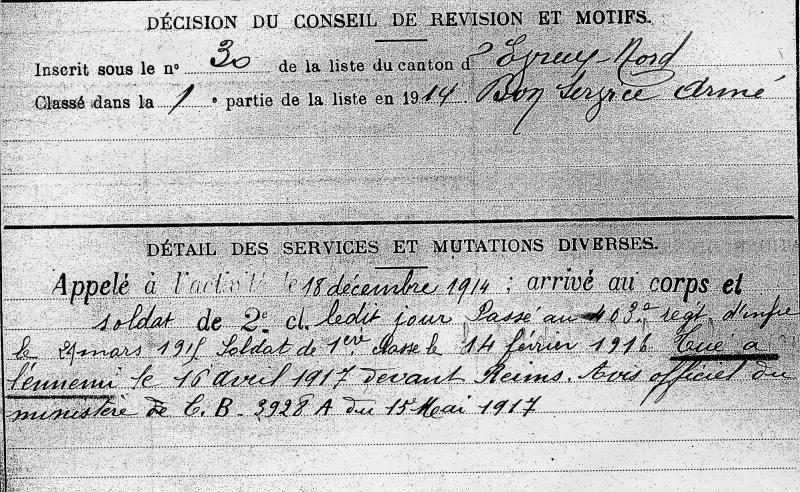 DÉCISION DU CONSEIL DE REVISION ET MOTIFS.
Inscrit sous le nº 30 de la liste du canton d' Evreux-Nord
Classé dans la 1 º partie de la liste en 1914. Bon Service Armé
DÉTAIL DES SERVICES ET MUTATIONS DIVERSES.
Appelé à l'activité le 18 décembre 1914 : arrivé au corps et
soldat de 2e cl. ledit jour Passé au 103e regt d'infie
le mars 1915 Soldat de 1ère classe le 14 février 1916 Tué a
l'ennemi le 16 avril 1917 devant Reims. Avis officiel du
ministère de B - 3928 A du 15 Mai 1917